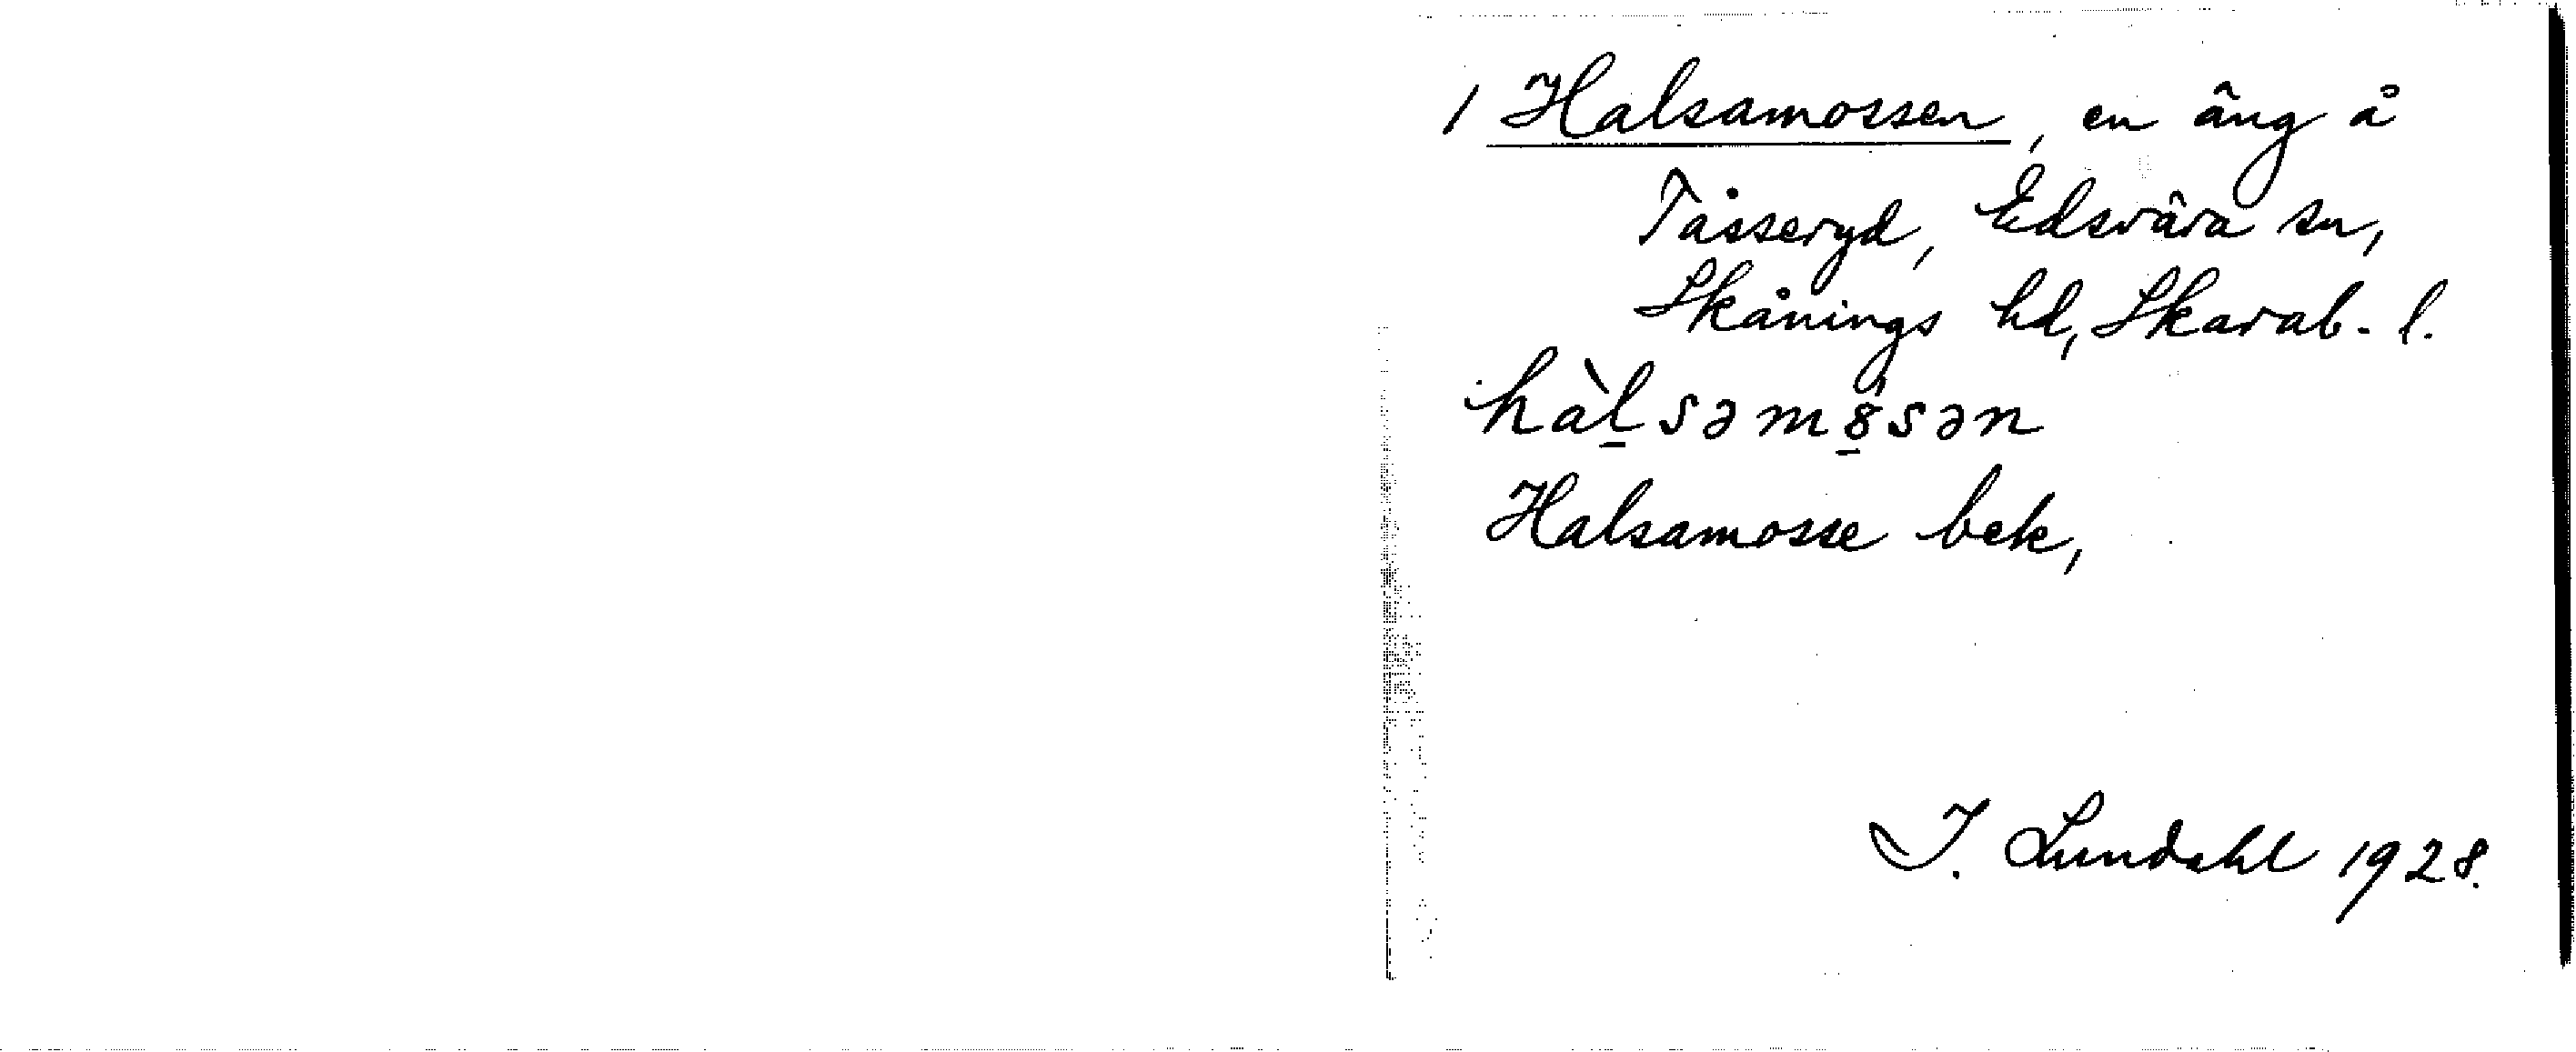 1 Halsamossen, en äng å
Tåsseryd, Edsvära sn,
Skånings hd, Skarab. l.
hàl̠səmo̠̍sən
Halsamosse bek,
I. Lundahl 1928.